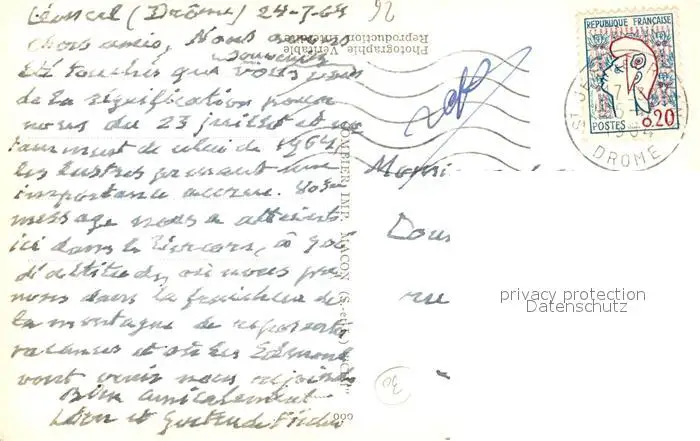 Léoncel (Drôme) 24-7-64
Chers amis, Nous avons
été touchés que vous
souveniez
de la signification pour
nous du 23 juillet et
de celui de 1964
les lustres prenant une
importance accrue. Votre
message nous a atteints
ici dans le Vercors, à 900
d'altitude, où nous
dans la fraîcheur de
la montagne de
vacances et où les
vont venir nous rejoindre
Bien amicalement
Léon et Gertrude
92
Photographie Véritable
Reproduction Interdite
COMBIER IMP. MACON (S.-et-L.) "CIM"
REPUBLIQUE FRANÇAISE
POSTES 0,20
ST JE
1964
DROME
Monsi
Dou
rue
30
privacy protection
Datenschutz